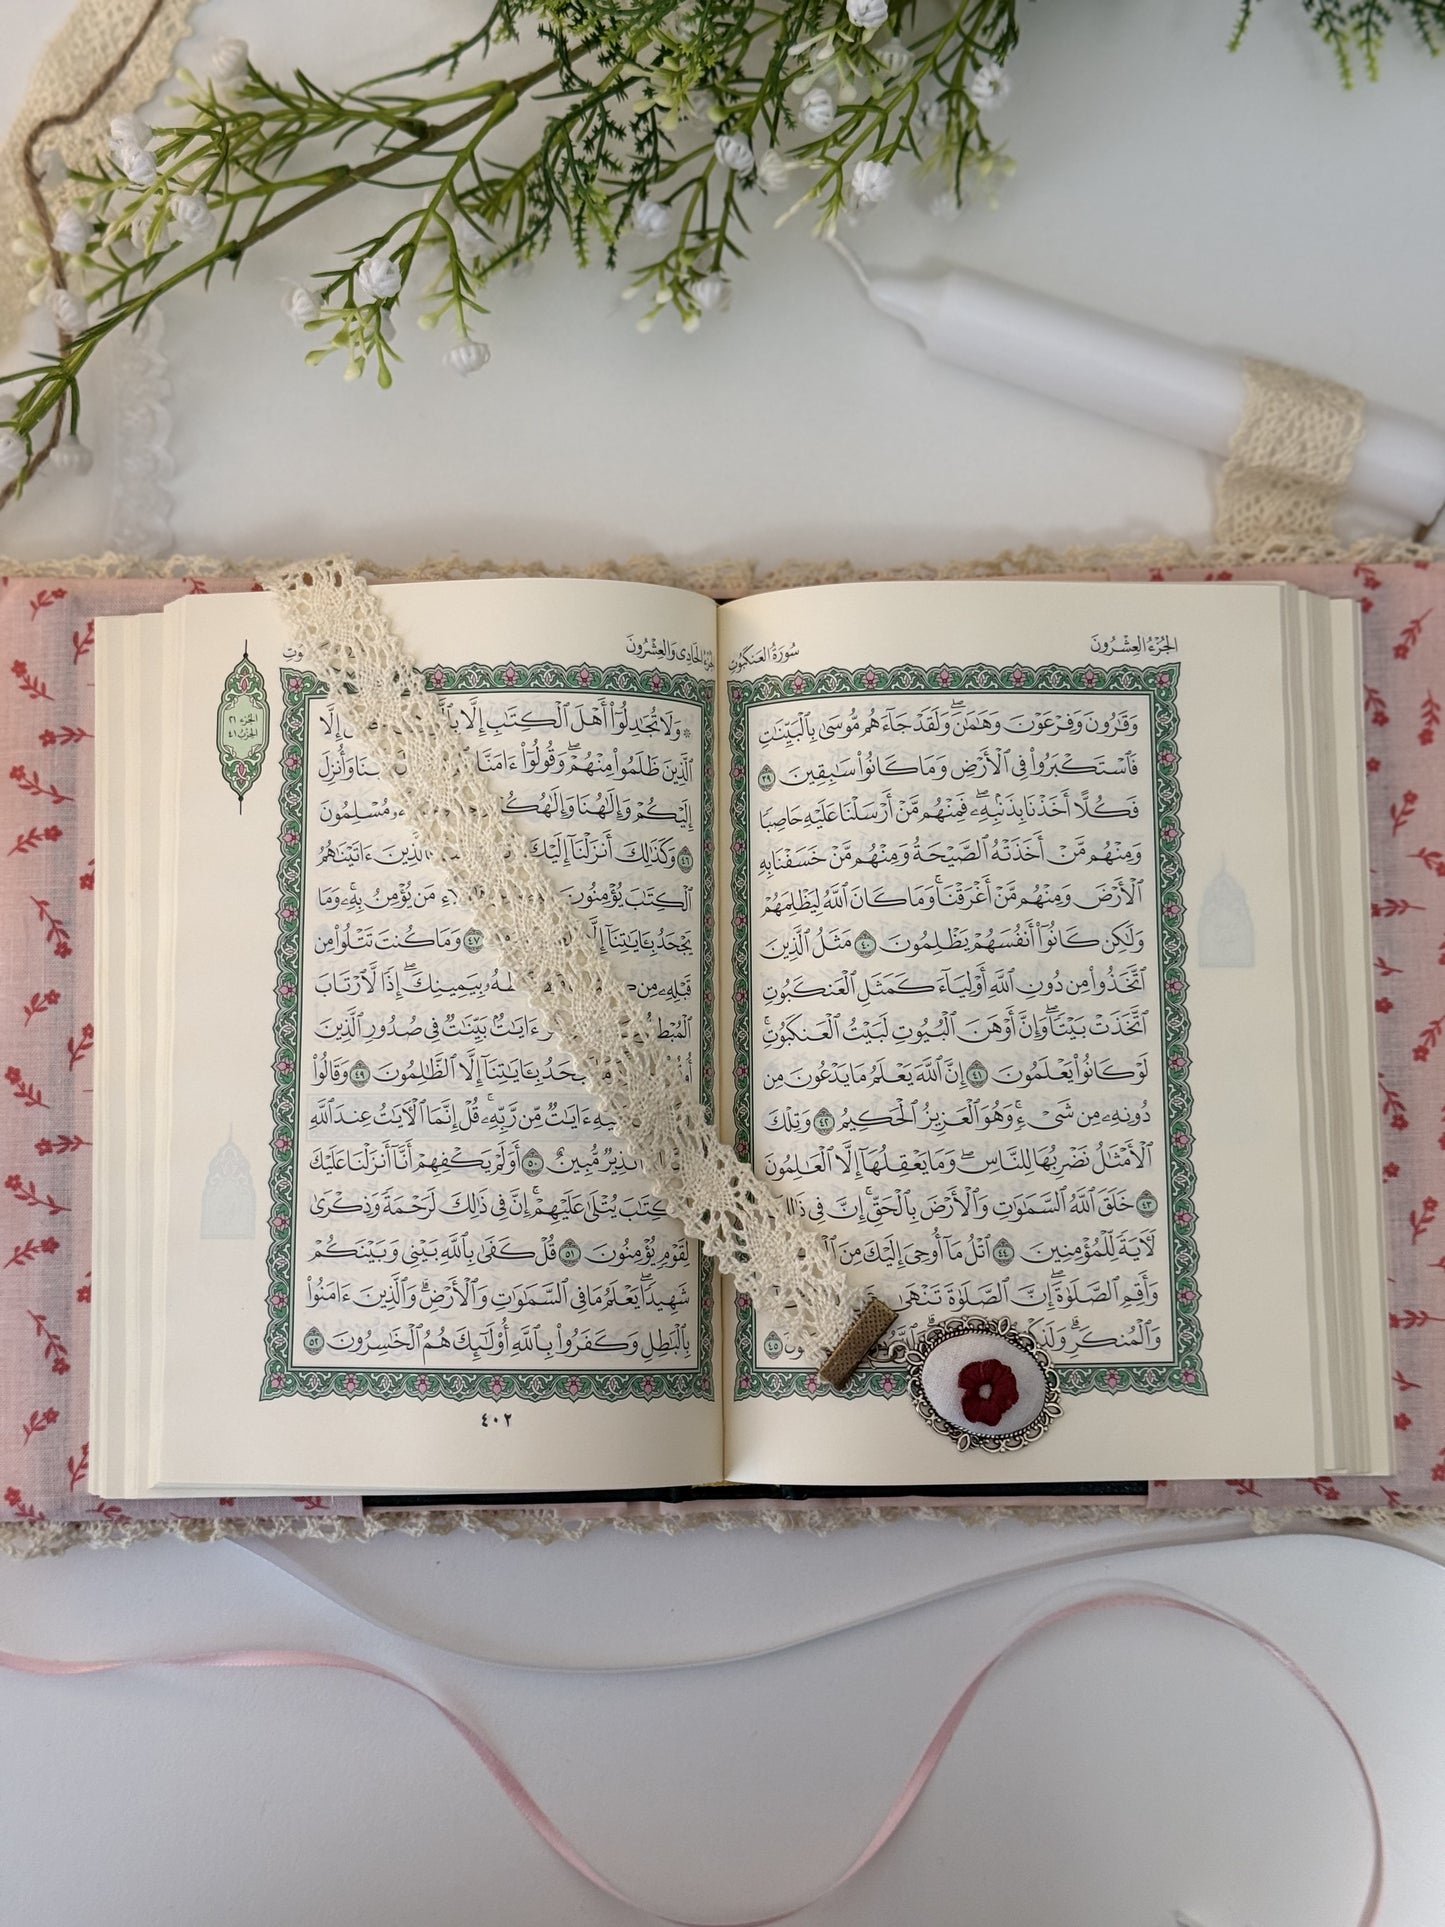 الجُزْءُ العِشْرُونَ
سُورَةُ العَنكَبُوتِ
وَقَٰرُونَ وَفِرْعَوْنَ وَهَٰمَٰنَۖ وَلَقَدْ جَآءَهُم مُّوسَىٰ بِٱلْبَيِّنَٰتِ
فَٱسْتَكْبَرُوا۟ فِى ٱلْأَرْضِ وَمَا كَانُوا۟ سَٰبِقِينَ ٣٩
فَكُلًّا أَخَذْنَا بِذَنۢبِهِۦۖ فَمِنْهُم مَّنْ أَرْسَلْنَا عَلَيْهِ حَاصِبًا
وَمِنْهُم مَّنْ أَخَذَتْهُ ٱلصَّيْحَةُ وَمِنْهُم مَّنْ خَسَفْنَا بِهِ
ٱلْأَرْضَ وَمِنْهُم مَّنْ أَغْرَقْنَاۚ وَمَا كَانَ ٱللَّهُ لِيَظْلِمَهُمْ
وَلَٰكِن كَانُوٓا۟ أَنفُسَهُمْ يَظْلِمُونَ ٤٠ مَثَلُ ٱلَّذِينَ
ٱتَّخَذُوا۟ مِن دُونِ ٱللَّهِ أَوْلِيَآءَ كَمَثَلِ ٱلْعَنكَبُوتِ
ٱتَّخَذَتْ بَيْتًاۖ وَإِنَّ أَوْهَنَ ٱلْبُيُوتِ لَبَيْتُ ٱلْعَنكَبُوتِۚ
لَوْ كَانُوا۟ يَعْلَمُونَ ٤١ إِنَّ ٱللَّهَ يَعْلَمُ مَا يَدْعُونَ مِن
دُونِهِۦ مِن شَىْءٍۚ وَهُوَ ٱلْعَزِيزُ ٱلْحَكِيمُ ٤٢ وَتِلْكَ
ٱلْأَمْثَٰلُ نَضْرِبُهَا لِلنَّاسِۖ وَمَا يَعْقِلُهَآ إِلَّا ٱلْعَٰلِمُونَ
٤٣ خَلَقَ ٱللَّهُ ٱلسَّمَٰوَٰتِ وَٱلْأَرْضَ بِٱلْحَقِّۚ إِنَّ فِى
لَءَايَةً لِّلْمُؤْمِنِينَ ٤٤ ٱتْلُ مَآ أُوحِىَ إِلَيْكَ مِنَ
وَأَقِمِ ٱلصَّلَوٰةَۖ إِنَّ ٱلصَّلَوٰةَ تَنْهَىٰ
وَٱلْمُنكَرِۗ ٤٥
الجُزْءُ الحَادِى وَالعِشْرُونَ
الجزء ٢١
الحزب ٤١
۞ وَلَا تُجَٰدِلُوٓا۟ أَهْلَ ٱلْكِتَٰبِ إِلَّا إِلَّا
ٱلَّذِينَ ظَلَمُوا۟ مِنْهُمْۖ وَقُولُوٓا۟ ءَامَنَّا وَأُنزِلَ
إِلَيْكُمْ وَإِلَٰهُنَا وَإِلَٰهُكُمْ مُسْلِمُونَ
٤٦ وَكَذَٰلِكَ أَنزَلْنَآ إِلَيْكَ ءَاتَيْنَٰهُمُ
ٱلْكِتَٰبَ يُؤْمِنُونَ مَن يُؤْمِنُ بِهِۦۚ وَمَا
يَجْحَدُ بِـَٔايَٰتِنَآ ٤٧ وَمَا كُنتَ تَتْلُوا۟ مِن
قَبْلِهِۦ مِن بِيَمِينِكَۖ إِذًا لَّٱرْتَابَ
ءَايَٰتٌۢ بَيِّنَٰتٌ فِى صُدُورِ ٱلَّذِينَ
يَجْحَدُ بِـَٔايَٰتِنَآ إِلَّا ٱلظَّٰلِمُونَ ٤٩ وَقَالُوا۟
ءَايَٰتٌ مِّن رَّبِّهِۦۚ قُلْ إِنَّمَا ٱلْءَايَٰتُ عِندَ ٱللَّهِ
نَذِيرٌ مُّبِينٌ ٥٠ أَوَلَمْ يَكْفِهِمْ أَنَّآ أَنزَلْنَا عَلَيْكَ
ٱلْكِتَٰبَ يُتْلَىٰ عَلَيْهِمْۚ إِنَّ فِى ذَٰلِكَ لَرَحْمَةً وَذِكْرَىٰ
لِقَوْمٍ يُؤْمِنُونَ ٥١ قُلْ كَفَىٰ بِٱللَّهِ بَيْنِى وَبَيْنَكُمْ
شَهِيدًاۖ يَعْلَمُ مَا فِى ٱلسَّمَٰوَٰتِ وَٱلْأَرْضِۗ وَٱلَّذِينَ ءَامَنُوا۟
بِٱلْبَٰطِلِ وَكَفَرُوا۟ بِٱللَّهِ أُو۟لَٰٓئِكَ هُمُ ٱلْخَٰسِرُونَ ٥٢
٤٠٢